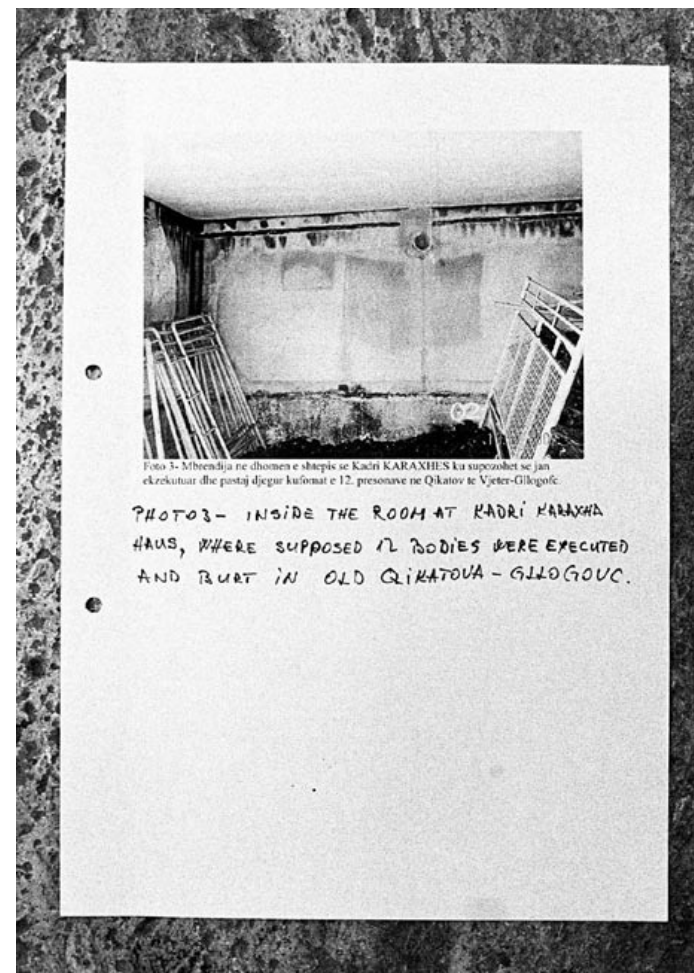 02
Foto 3- Mbrendija ne dhomen e shtepis se Kadri KARAXHES ku supozohet se jan
ekzekutuar dhe pastaj djegur kufomat e 12. presonave ne Qikatov te Vjeter-Gllogofc.
PHOTO3- INSIDE THE ROOM AT KADRI KARAXHA
HAUS, WHERE SUPPOSED 12 BODIES WERE EXECUTED
AND BURT IN OLD QIKATOVA - GLLOGOVC.